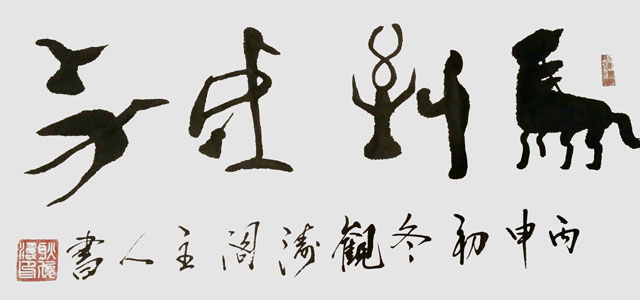 馬到成功
丙申初冬觀濤閣主人書